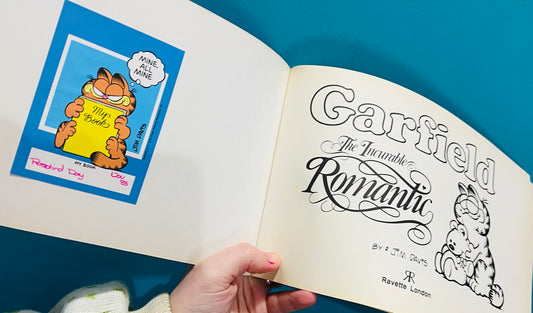 MINE,
ALL
MINE
My
Book
JIM DAVIS
MY BOOK
Rosalind Day
Garfield
The Incurable
Romantic
BY: JIM DAVIS
Ravette London